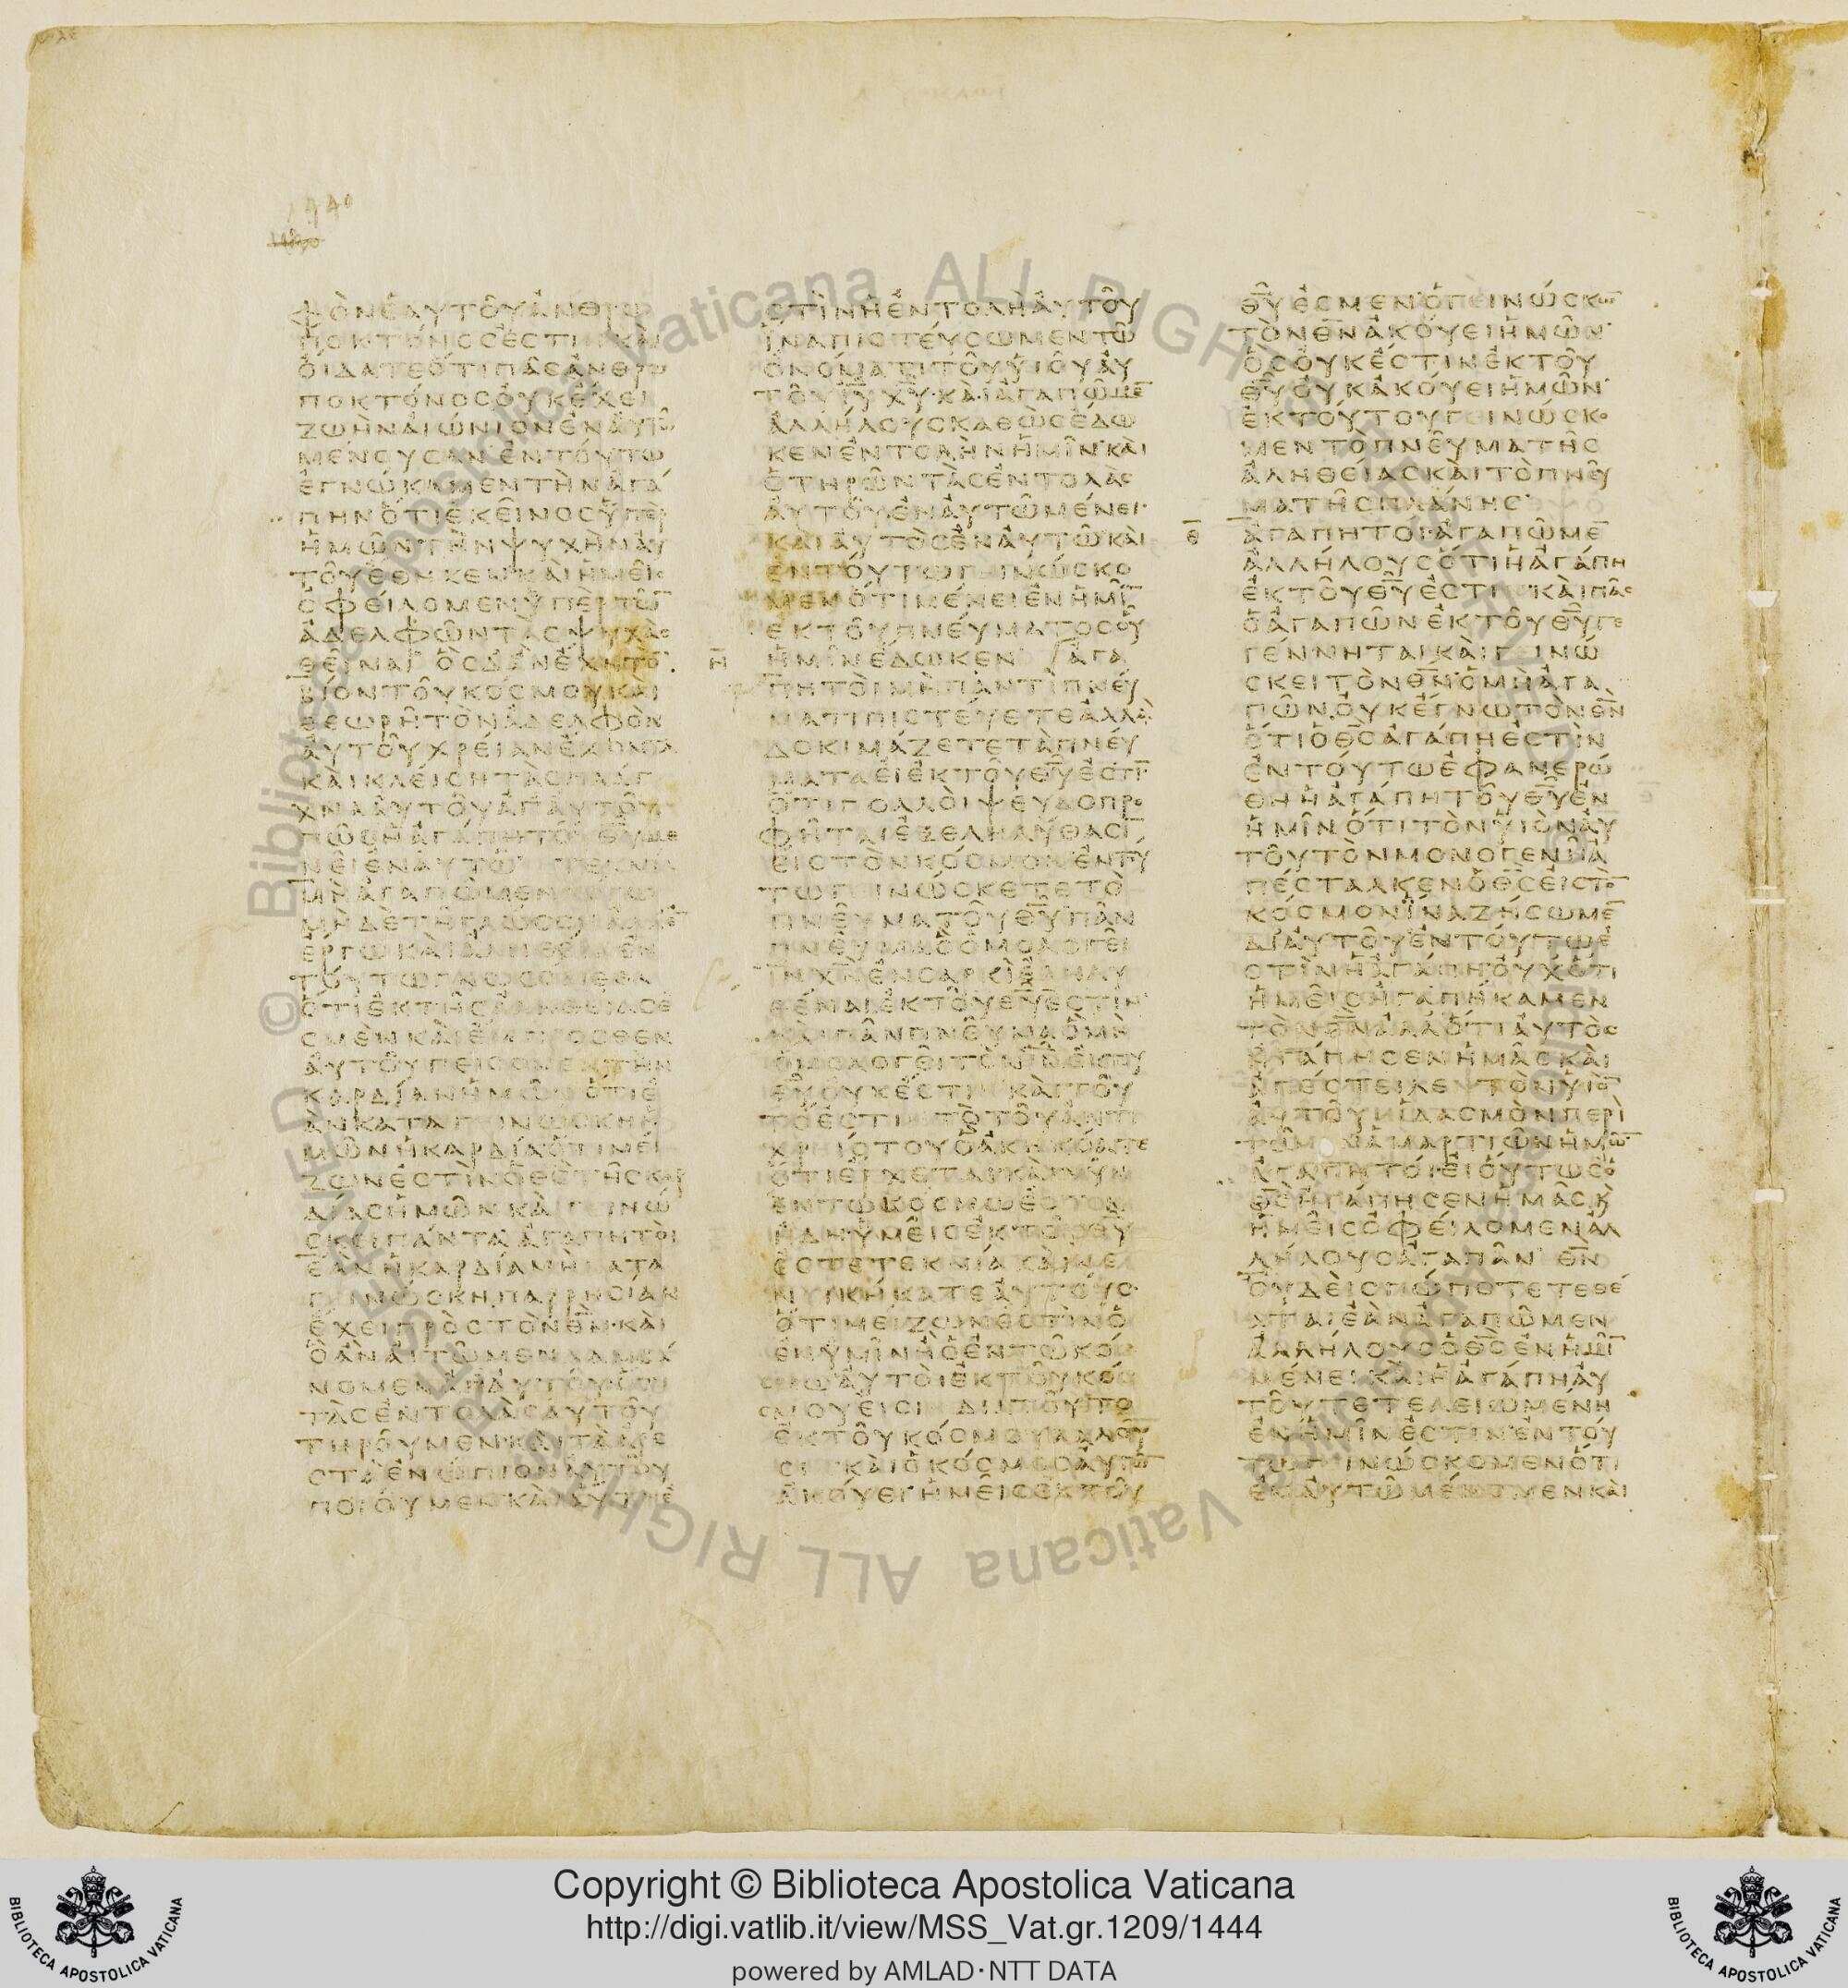 1440
ΦΟΝΕΑΥΤΟΥΑΝΘΡΩ
ΠΟΚΤΟΝΟϹΕϹΤΙΝΚΑΙ
ΟΙΔΑΤΕΟΤΙΠΑϹΑΝΘΡΩ
ΠΟΚΤΟΝΟϹΟΥΚΕΧΕΙ
ΖΩΗΝΑΙΩΝΙΟΝΕΝΑΥΤΩ
ΜΕΝΟΥϹΑΝΕΝΤΟΥΤΩ
ΕΓΝΩΚΑΜΕΝΤΗΝΑΓΑ
ΠΗΝΟΤΙΕΚΕΙΝΟϹΥΠΕΡ
ΗΜΩΝΤΗΝΨΥΧΗΝΑΥ
ΤΟΥΕΘΗΚΕΝΚΑΙΗΜΕΙϹ
ΟΦΕΙΛΟΜΕΝΥΠΕΡΤΩ̅
ΑΔΕΛΦΩΝΤΑϹΨΥΧΑϹ
ΘΕΙΝΑΙ ΟϹΔΑΝΕΧΗΤΟ̅
ΒΙΟΝΤΟΥΚΟϹΜΟΥΚΑΙ
ΘΕΩΡΗΤΟΝΑΔΕΛΦΟΝ
ΑΥΤΟΥΧΡΕΙΑΝΕΧΟΝΤΑ
ΚΑΙΚΛΕΙϹΗΤΑϹΠΛΑΓ
ΧΝΑΑΥΤΟΥΑΠΑΥΤΟΥ
ΠΩϹΗΑΓΑΠΗΤΟΥΘ̅Υ̅ΜΕ
ΝΕΙΕΝΑΥΤΩ ΤΕΚΝΙΑ
ΜΗΑΓΑΠΩΜΕΝΛΟΓΩ
ΜΗΔΕΤΗΓΛΩϹϹΗΑΛΛΕ̅
ΕΡΓΩΚΑΙΑΛΗΘΕΙΑΕΝ
ΤΟΥΤΩΓΝΩϹΟΜΕΘΑ
ΟΤΙΕΚΤΗϹΑΛΗΘΕΙΑϹΕ
ϹΜΕΝΚΑΙΕΜΠΡΟϹΘΕΝ
ΑΥΤΟΥΠΕΙϹΟΜΕΝΤΗΝ
ΚΑΡΔΙΑΝΗΜΩΝΟΤΙΕ
ΑΝΚΑΤΑΓΕΙΝΩϹΚΗΗ
ΜΩΝΗΚΑΡΔΙΑΟΤΙΜΕΙ
ΖΩΝΕϹΤΙΝΟΘ̅Ϲ̅ΤΗϹΚΑΡ
ΔΙΑϹΗΜΩΝΚΑΙΓΕΙΝΩ
ϹΚΕΙΠΑΝΤΑΑΓΑΠΗΤΟΙ
ΕΑΝΗΚΑΡΔΙΑΜΗΚΑΤΑ
ΓΕΙΝΩϹΚΗΠΑΡΡΗϹΙΑΝ
ΕΧΕΙΠΡΟϹΤΟΝΘ̅Ν̅ΚΑΙ
ΟΑΝΑΙΤΩΜΕΝΛΑΜΒΑ
ΝΟΜΕΝΑΠΑΥΤΟΥΟΤΙ
ΤΑϹΕΝΤΟΛΑϹΑΥΤΟΥ
ΤΗΡΟΥΜΕΝΚΑΙΤΑΑΡΕ
ϹΤΑΕΝΩΠΙΟΝΑΥΤΟΥ
ΠΟΙΟΥΜΕΝΚΑΙΑΥΤΗΕ
ϹΤΙΝΗΕΝΤΟΛΗΑΥΤΟΥ
ΙΝΑΠΙϹΤΕΥϹΩΜΕΝΤΩ
ΟΝΟΜΑΤΙΤΟΥΥΙΟΥΑΥ
ΤΟΥΙ̅Υ̅Χ̅Υ̅ΚΑΙΑΓΑΠΩΜΕ̅
ΑΛΛΗΛΟΥϹΚΑΘΩϹΕΔΩ
ΚΕΝΕΝΤΟΛΗΝΗΜΙΝΚΑΙ
ΟΤΗΡΩΝΤΑϹΕΝΤΟΛΑϹ
ΑΥΤΟΥΕΝΑΥΤΩΜΕΝΕΙ
ΚΑΙΑΥΤΟϹΕΝΑΥΤΩΚΑΙ
ΕΝΤΟΥΤΩΓΕΙΝΩϹΚΟ
ΜΕΝΟΤΙΜΕΝΕΙΕΝΗΜΙ̅
ΕΚΤΟΥΠΝΕΥΜΑΤΟϹΟΥ
Η̅ ΗΜΙΝΕΔΩΚΕΝ ΑΓΑ
ΠΗΤΟΙΜΗΠΑΝΤΙΠΝΕΥ
ΜΑΤΙΠΙϹΤΕΥΕΤΕΑΛΛΑ
ΔΟΚΙΜΑΖΕΤΕΤΑΠΝΕΥ
ΜΑΤΑΕΙΕΚΤΟΥΘ̅Υ̅ΕϹΤΙ̅
ΟΤΙΠΟΛΛΟΙΨΕΥΔΟΠΡΟ
ΦΗΤΑΙΕΞΕΛΗΛΥΘΑϹΙ̅
ΕΙϹΤΟΝΚΟϹΜΟΝΕΝΤΟΥ
ΤΩΓΕΙΝΩϹΚΕΤΕΤΟ
ΠΝΕΥΜΑΤΟΥΘ̅Υ̅ΠΑΝ
ΠΝΕΥΜΑΟΟΜΟΛΟΓΕΙ
Ι̅Ν̅Χ̅Ν̅ΕΝϹΑΡΚΙΕΛΗΛΥ
ΘΕΝΑΙΕΚΤΟΥΘ̅Υ̅ΕϹΤΙΝ
ΚΑΙΠΑΝΠΝΕΥΜΑΟΜΗ
ΟΜΟΛΟΓΕΙΤΟΝΙ̅Ν̅ΕΚΤΟΥ
Θ̅Υ̅ΟΥΚΕϹΤΙΝΚΑΙΤΟΥ
ΤΟΕϹΤΙΝΤΟΤΟΥΑΝΤΙ
ΧΡΕΙϹΤΟΥΟΑΚΗΚΟΑΤΕ
ΟΤΙΕΡΧΕΤΑΙΚΑΙΝΥΝ
ΕΝΤΩΚΟϹΜΩΕϹΤΙΝ
ΗΔΗΥΜΕΙϹΕΚΤΟΥΘ̅Υ̅
ΕϹΤΕΤΕΚΝΙΑΚΑΙΝΕ
ΝΙΚΗΚΑΤΕΑΥΤΟΥϹ
ΟΤΙΜΕΙΖΩΝΕϹΤΙΝΟ
ΕΝΥΜΙΝΗΟΕΝΤΩΚΟ
ϹΜΩΑΥΤΟΙΕΚΤΟΥΚΟ
ϹΜΟΥΕΙϹΙΝΔΙΑΤΟΥΤΟ
ΕΚΤΟΥΚΟϹΜΟΥΛΑΛΟΥ
ϹΙΝΚΑΙΟΚΟϹΜΟϹΑΥΤΩ̅
ΑΚΟΥΕΙΗΜΕΙϹΕΚΤΟΥ
Θ̅Υ̅ΕϹΜΕΝΟΓΕΙΝΩϹΚΩ̅
ΤΟΝΘ̅Ν̅ΑΚΟΥΕΙΗΜΩΝ
ΟϹΟΥΚΕϹΤΙΝΕΚΤΟΥ
Θ̅Υ̅ΟΥΚΑΚΟΥΕΙΗΜΩΝ
ΕΚΤΟΥΤΟΥΓΕΙΝΩϹΚΟ
ΜΕΝΤΟΠΝΕΥΜΑΤΗϹ
ΑΛΗΘΕΙΑϹΚΑΙΤΟΠΝΕΥ
ΜΑΤΗϹΠΛΑΝΗϹ
Θ̅ ΑΓΑΠΗΤΟΙΑΓΑΠΩΜΕ̅
ΑΛΛΗΛΟΥϹΟΤΙΗΑΓΑΠΗ
ΕΚΤΟΥΘ̅Υ̅ΕϹΤΙΝΚΑΙΠΑϹ
ΟΑΓΑΠΩΝΕΚΤΟΥΘ̅Υ̅ΓΕ
ΓΕΝΝΗΤΑΙΚΑΙΓΕΙΝΩ
ϹΚΕΙΤΟΝΘ̅Ν̅ΟΜΗΑΓΑ
ΠΩΝΟΥΚΕΓΝΩΤΟΝΘ̅Ν̅
ΟΤΙΟΘ̅Ϲ̅ΑΓΑΠΗΕϹΤΙΝ
ΕΝΤΟΥΤΩΕΦΑΝΕΡΩ
ΘΗΗΑΓΑΠΗΤΟΥΘ̅Υ̅ΕΝ
ΗΜΙΝΟΤΙΤΟΝΥΙΟΝΑΥ
ΤΟΥΤΟΝΜΟΝΟΓΕΝΗΑ
ΠΕϹΤΑΛΚΕΝΟΘ̅Ϲ̅ΕΙϹΤΟ̅
ΚΟϹΜΟΝΙΝΑΖΗϹΩΜΕ̅
ΔΙΑΥΤΟΥΕΝΤΟΥΤΩΕ
ϹΤΙΝΗΑΓΑΠΗΟΥΧΟΤΙ
ΗΜΕΙϹΗΓΑΠΗΚΑΜΕΝ
ΤΟΝΘ̅Ν̅ΑΛΛΟΤΙΑΥΤΟϹ
ΗΓΑΠΗϹΕΝΗΜΑϹΚΑΙ
ΑΠΕϹΤΕΙΛΕΝΤΟΝΥΙΟ̅
ΑΥΤΟΥΙΛΑϹΜΟΝΠΕΡΙ
ΤΩΝΑΜΑΡΤΙΩΝΗΜΩ̅
ΑΓΑΠΗΤΟΙΕΙΟΥΤΩϹΟ
Θ̅Ϲ̅ΗΓΑΠΗϹΕΝΗΜΑϹΚ
ΗΜΕΙϹΟΦΕΙΛΟΜΕΝΑΛ
ΛΗΛΟΥϹΑΓΑΠΑΝ Θ̅Ν̅
ΟΥΔΕΙϹΠΩΠΟΤΕΤΕΘΕ
ΑΤΑΙΕΑΝΑΓΑΠΩΜΕΝ
ΑΛΛΗΛΟΥϹΟΘ̅Ϲ̅ΕΝΗΜΙ̅
ΜΕΝΕΙΚΑΙΗΑΓΑΠΗΑΥ
ΤΟΥΤΕΤΕΛΕΙΩΜΕΝΗ
ΕΝΗΜΙΝΕϹΤΙΝΕΝΤΟΥ
ΤΩΓΕΙΝΩϹΚΟΜΕΝΟΤΙ
ΕΝΑΥΤΩΜΕΝΟΜΕΝΚΑΙ
© Biblioteca Apostolica Vaticana ALL RIGHTS RESERVED
Copyright © Biblioteca Apostolica Vaticana
http://digi.vatlib.it/view/MSS_Vat.gr.1209/1444
powered by AMLAD·NTT DATA
BIBLIOTECA APOSTOLICA VATICANA
BIBLIOTECA APOSTOLICA VATICANA